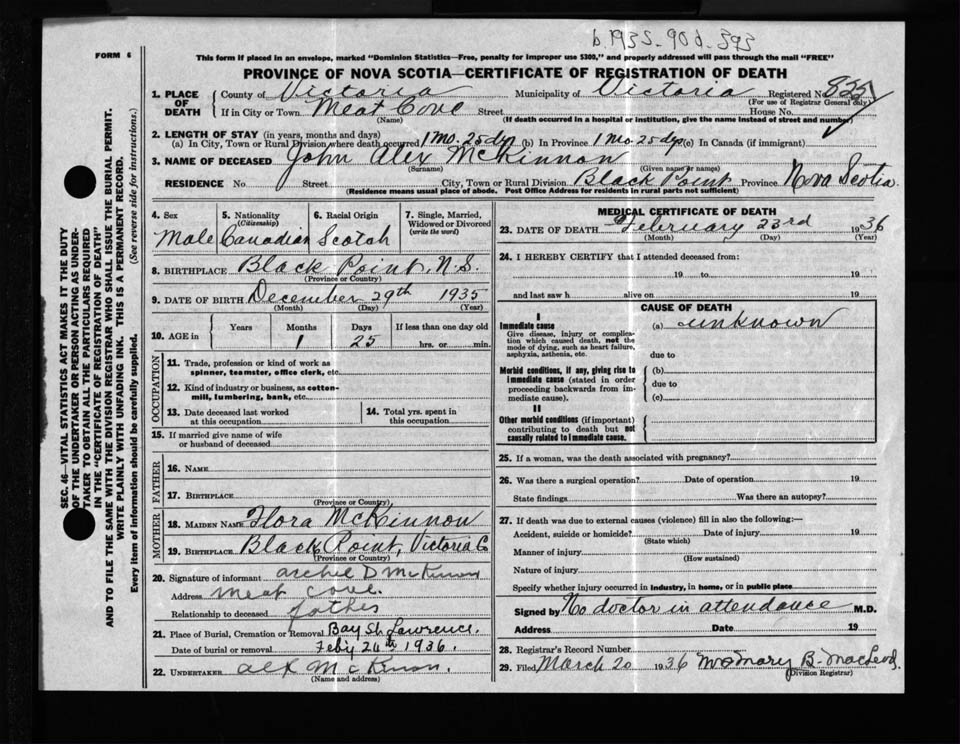 b. 1935. 90d. 393
FORM 6
This form if placed in an envelope, marked "Dominion Statistics—Free, penalty for improper use $300," and properly addressed will pass through the mail "FREE"
PROVINCE OF NOVA SCOTIA—CERTIFICATE OF REGISTRATION OF DEATH
1. PLACE OF DEATH County of Victoria Municipality of Victoria Registered No. 825
(For use of Registrar General only)
If in City or Town Meat Cove Street House No.
(Name) (If death occurred in a hospital or institution, give the name instead of street and number)
2. LENGTH OF STAY (in years, months and days)
(a) In City, Town or Rural Division where death occurred 1 Mo. 25 dys (b) In Province 1 Mo 25 dys (c) In Canada (if immigrant)
3. NAME OF DECEASED John Alex McKinnon
(Surname) (Given name or names)
RESIDENCE No. Street City, Town or Rural Division Black Point Province Nova Scotia
(Residence means usual place of abode. Post Office Address for residents in rural parts not sufficient)
4. Sex 5. Nationality (Citizenship) 6. Racial Origin 7. Single, Married, Widowed or Divorced (write the word)
Male Canadian Scotch
8. BIRTHPLACE Black Point, N.S.
(Province or Country)
9. DATE OF BIRTH December 29th 1935
(Month) (Day) (Year)
10. AGE in Years Months Days If less than one day old
1 25 hrs. or min.
OCCUPATION
11. Trade, profession or kind of work as
spinner, teamster, office clerk, etc.
12. Kind of industry or business, as cotton-
mill, lumbering, bank, etc.
13. Date deceased last worked
at this occupation
14. Total yrs. spent in
this occupation
15. If married give name of wife
or husband of deceased
FATHER
16. NAME
17. BIRTHPLACE
(Province or Country)
MOTHER
18. MAIDEN NAME Flora McKinnon
19. BIRTHPLACE Black Point, Victoria Co
(Province or Country)
20. Signature of informant Archie D McKinnon
Address Meat Cove.
Relationship to deceased father
21. Place of Burial, Cremation or Removal Bay St. Lawrence.
Date of burial or removal Feby 26th 1936.
22. UNDERTAKER Alex McKinnon.
(Name and address)
MEDICAL CERTIFICATE OF DEATH
23. DATE OF DEATH February 23rd 1936
(Month) (Day) (Year)
24. I HEREBY CERTIFY that I attended deceased from:
19 to 19
and last saw h alive on 19
CAUSE OF DEATH
I
Immediate cause (a) unknown
Give disease, injury or complica-
tion which caused death, not the
mode of dying, such as heart failure,
asphyxia, asthenia, etc. due to
Morbid conditions, if any, giving rise to (b)
immediate cause (stated in order due to
proceeding backwards from im-
mediate cause). (c)
II
Other morbid conditions (if important)
contributing to death but not
causally related to immediate cause.
25. If a woman, was the death associated with pregnancy?
26. Was there a surgical operation? Date of operation 19
State findings Was there an autopsy?
27. If death was due to external causes (violence) fill in also the following:—
Accident, suicide or homicide? Date of injury 19
(State which)
Manner of injury
(How sustained)
Nature of injury
Specify whether injury occurred in industry, in home, or in public place
Signed by No doctor in attendance M.D.
Address Date 19
28. Registrar's Record Number
29. Filed March 20 1936 Mrs Mary B. MacLeod.
(Division Registrar)
SEC. 46—VITAL STATISTICS ACT MAKES IT THE DUTY
OF THE UNDERTAKER OR PERSON ACTING AS UNDER-
TAKER TO OBTAIN ALL THE PARTICULARS REQUIRED
IN THE "CERTIFICATE OF REGISTRATION OF DEATH"
AND TO FILE THE SAME WITH THE DIVISION REGISTRAR WHO SHALL ISSUE THE BURIAL PERMIT.
WRITE PLAINLY WITH UNFADING INK. THIS IS A PERMANENT RECORD.
Every item of information should be carefully supplied. (See reverse side for instructions.)